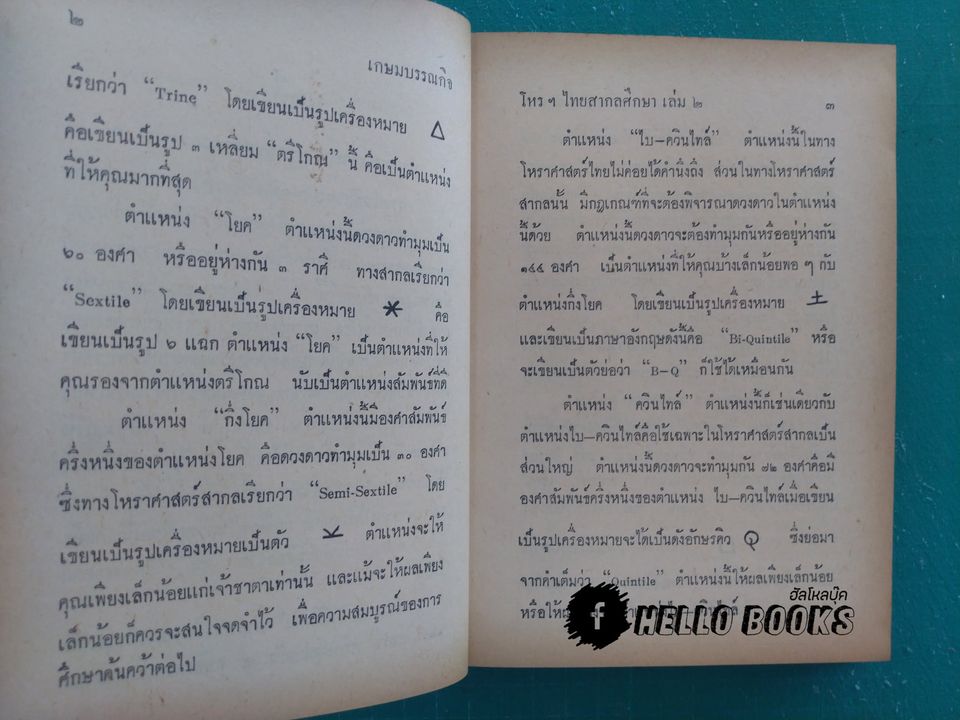 ๒
เกษมบรรณกิจ
เรียกว่า “Trine” โดยเขียนเป็นรูปเครื่องหมาย △
คือเขียนเป็นรูป ๓ เหลี่ยม “ตรีโกณ” นี้ คือเป็นตำแหน่ง
ที่ให้คุณมากที่สุด
ตำแหน่ง “โยค” ตำแหน่งนี้ดวงดาวทำมุมเป็น
๖๐ องศา หรืออยู่ห่างกัน ๓ ราศี ทางสากลเรียกว่า
“Sextile” โดยเขียนเป็นรูปเครื่องหมาย ⚹ คือ
เขียนเป็นรูป ๖ แฉก ตำแหน่ง “โยค” เป็นตำแหน่งที่ให้
คุณรองจากตำแหน่งตรีโกณ นับเป็นตำแหน่งสัมพันธ์ที่ดี
ตำแหน่ง “กึ่งโยค” ตำแหน่งนี้มีองศาสัมพันธ์
ครึ่งหนึ่งของตำแหน่งโยค คือดวงดาวทำมุมเป็น ๓๐ องศา
ซึ่งทางโหราศาสตร์สากลเรียกว่า “Semi-Sextile” โดย
เขียนเป็นรูปเครื่องหมายเป็นตัว ⚺ ตำแหน่งจะให้
คุณเพียงเล็กน้อยแก่เจ้าชาตาเท่านั้น และแม้จะให้ผลเพียง
เล็กน้อยก็ควรจะสนใจจดจำไว้ เพื่อความสมบูรณ์ของการ
ศึกษาค้นคว้าต่อไป
โหร ฯ ไทยสากลศึกษา เล่ม ๒ ๓
ตำแหน่ง “ไบ—ควินไทล์” ตำแหน่งนี้ในทาง
โหราศาสตร์ไทยไม่ค่อยได้คำนึงถึง ส่วนในทางโหราศาสตร์
สากลนั้น มีกฎเกณฑ์ที่จะต้องพิจารณาดวงดาวในตำแหน่ง
นี้ด้วย ตำแหน่งนี้ดวงดาวจะต้องทำมุมกันหรืออยู่ห่างกัน
๑๔๔ องศา เป็นตำแหน่งที่ให้คุณบ้างเล็กน้อยพอ ๆ กับ
ตำแหน่งกึ่งโยค โดยเขียนเป็นรูปเครื่องหมาย ±
และเขียนเป็นภาษาอังกฤษดังนี้คือ “Bi-Quintile” หรือ
จะเขียนเป็นตัวย่อว่า “B—Q” ก็ใช้ได้เหมือนกัน
ตำแหน่ง “ควินไทล์” ตำแหน่งนี้ก็เช่นเดียวกับ
ตำแหน่งไบ—ควินไทล์คือใช้เฉพาะในโหราศาสตร์สากลเป็น
ส่วนใหญ่ ตำแหน่งนี้ดวงดาวจะทำมุมกัน ๗๒ องศาคือมี
องศาสัมพันธ์ครึ่งหนึ่งของตำแหน่ง ไบ—ควินไทล์เมื่อเขียน
เป็นรูปเครื่องหมายจะได้เป็นดังอักษรคิว Q ซึ่งย่อมา
จากคำเต็มว่า “Quintile” ตำแหน่งนี้ให้ผลเพียงเล็กน้อย
หรือให้
ฮัลโหลบุ๊ค
f HELLO BOOKS